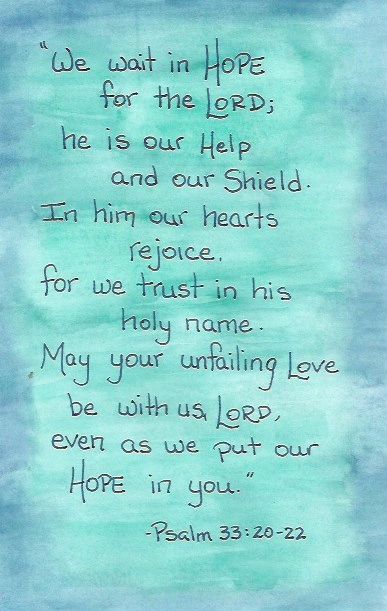 "We wait in HOPE
for the LORD;
he is our Help
and our Shield.
In him our hearts
rejoice,
for we trust in his
holy name.
May your unfailing Love
be with us, LORD,
even as we put our
HOPE in you."
-Psalm 33:20-22